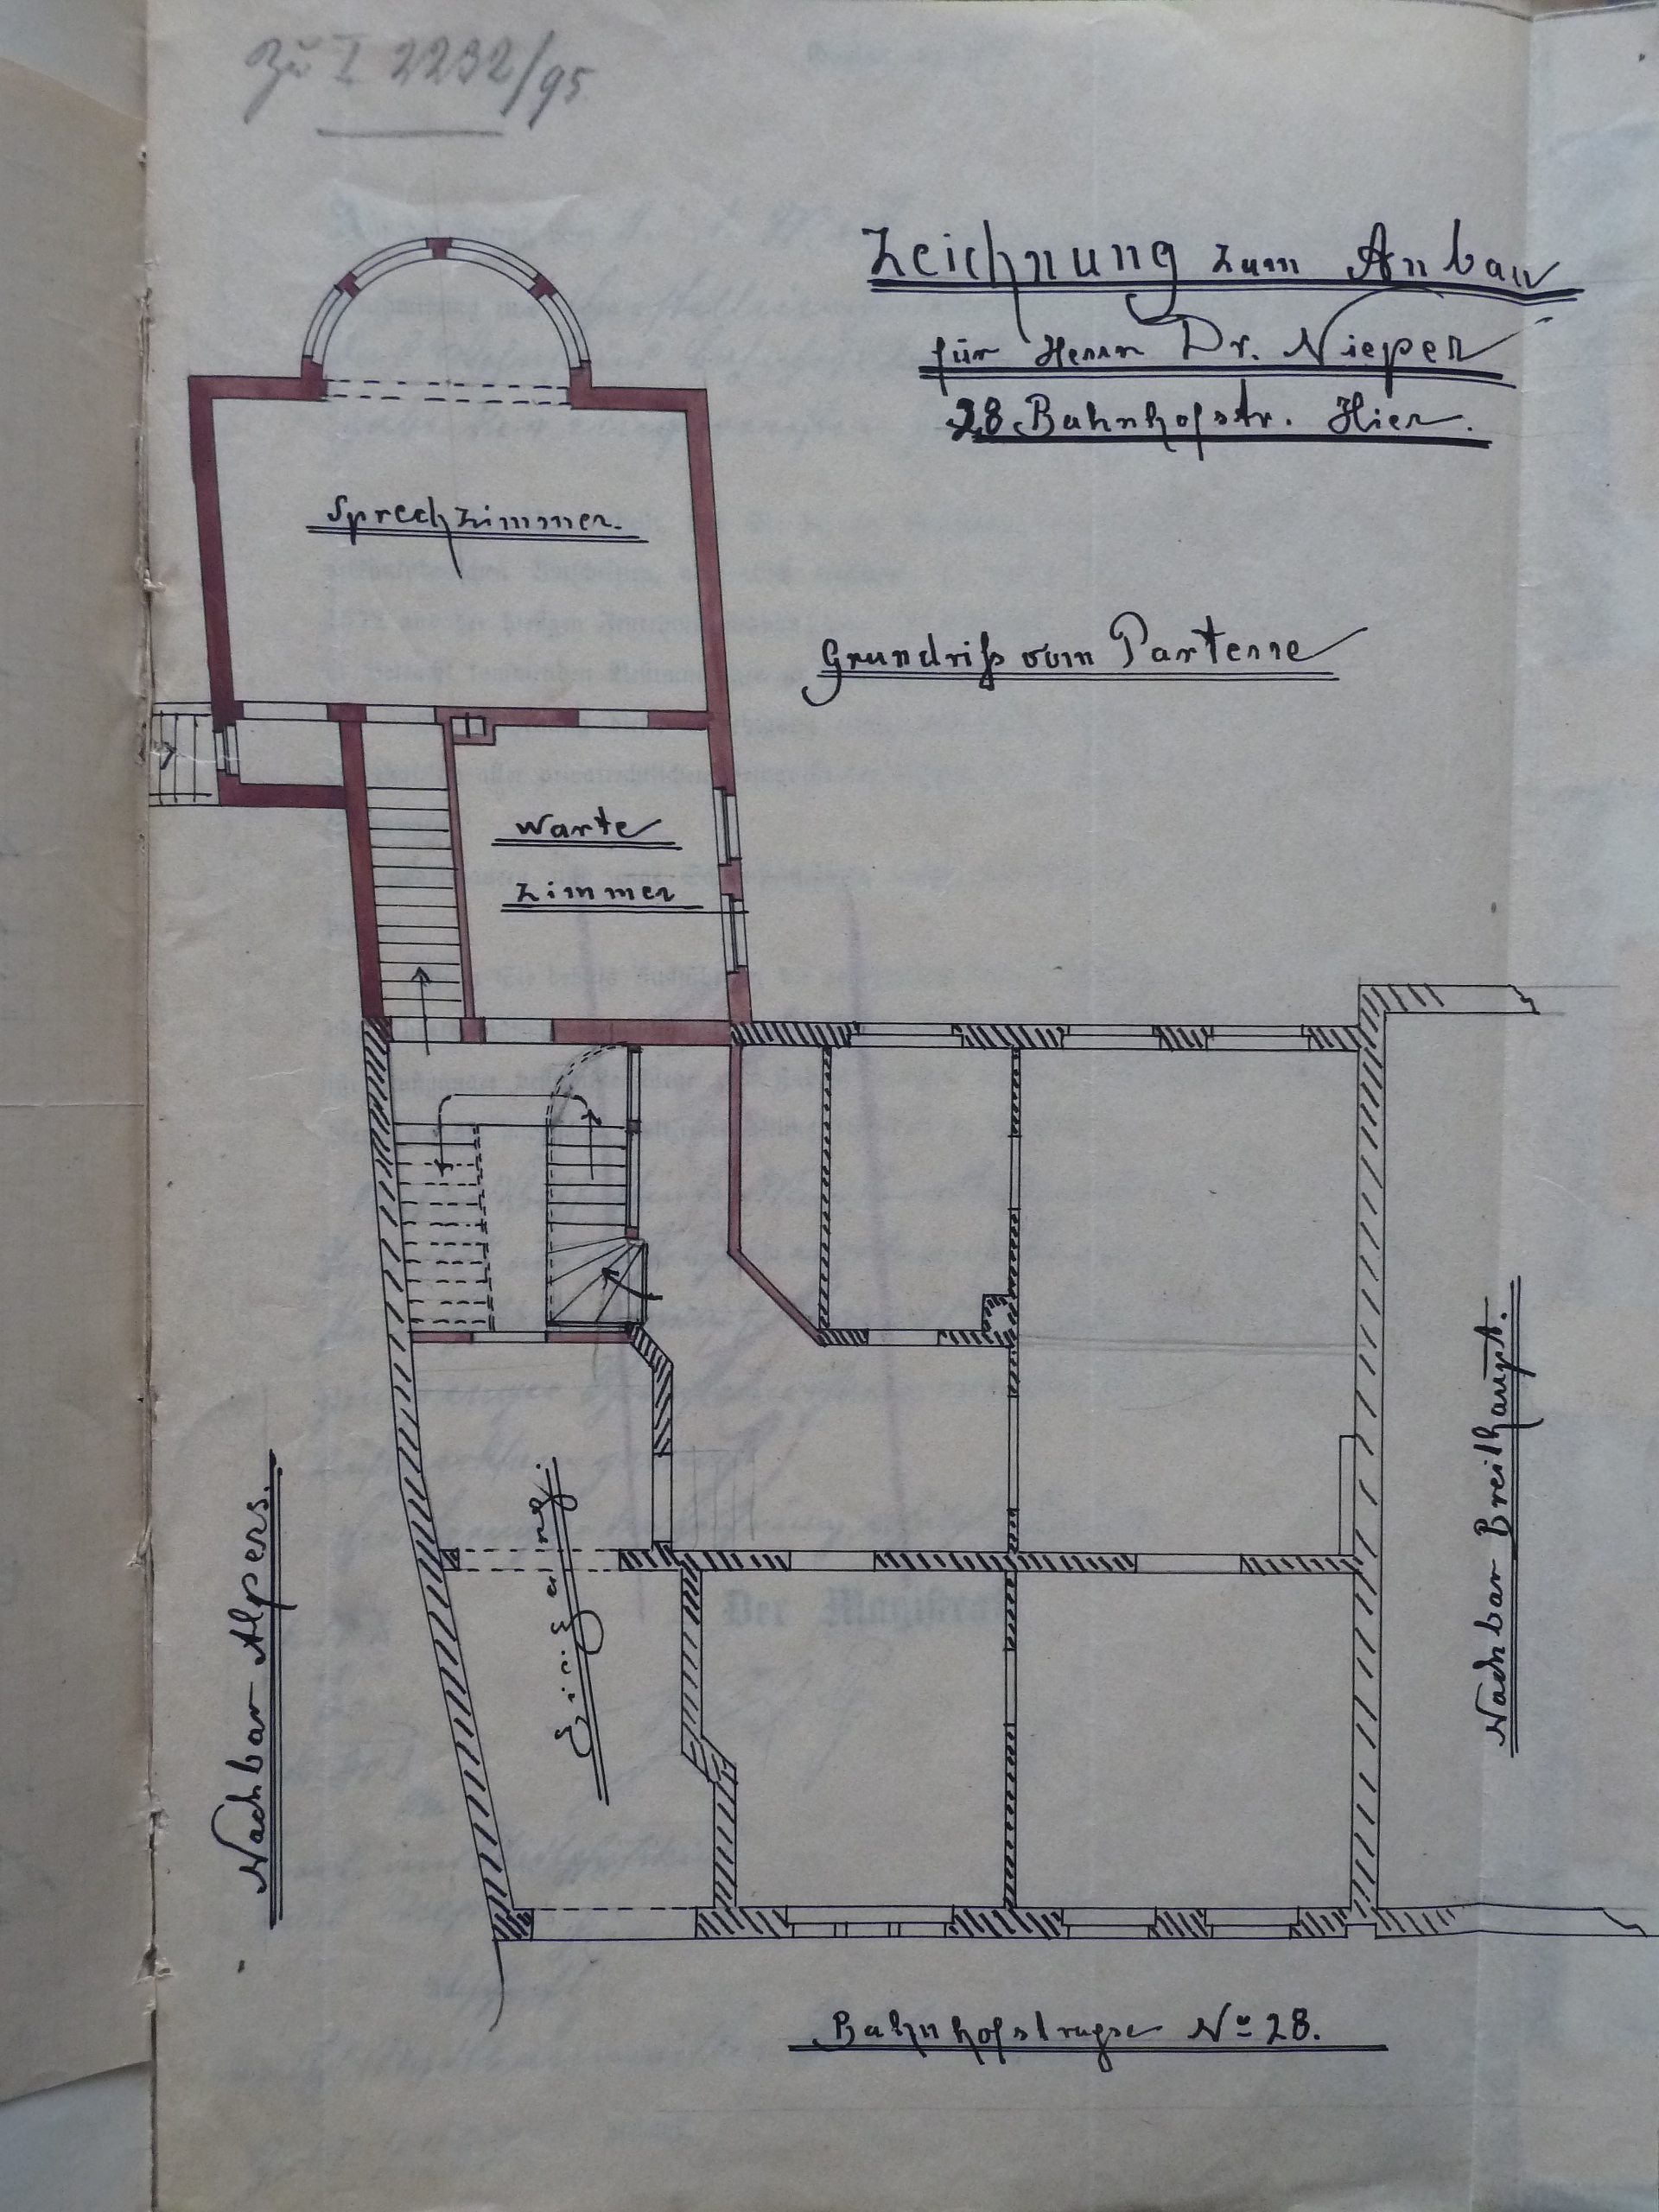 Zu I 2232/95
Zeichnung zum Anbau
für Herrn Dr. Nieper
28 Bahnhofstr. Hier.
Sprechzimmer.
Grundriß vom Parterre
Warte
zimmer
Nachbar Alpers.
Eingang.
Nachbar Breithaupt.
Der Magistrat
Bahnhofstraße No 28.